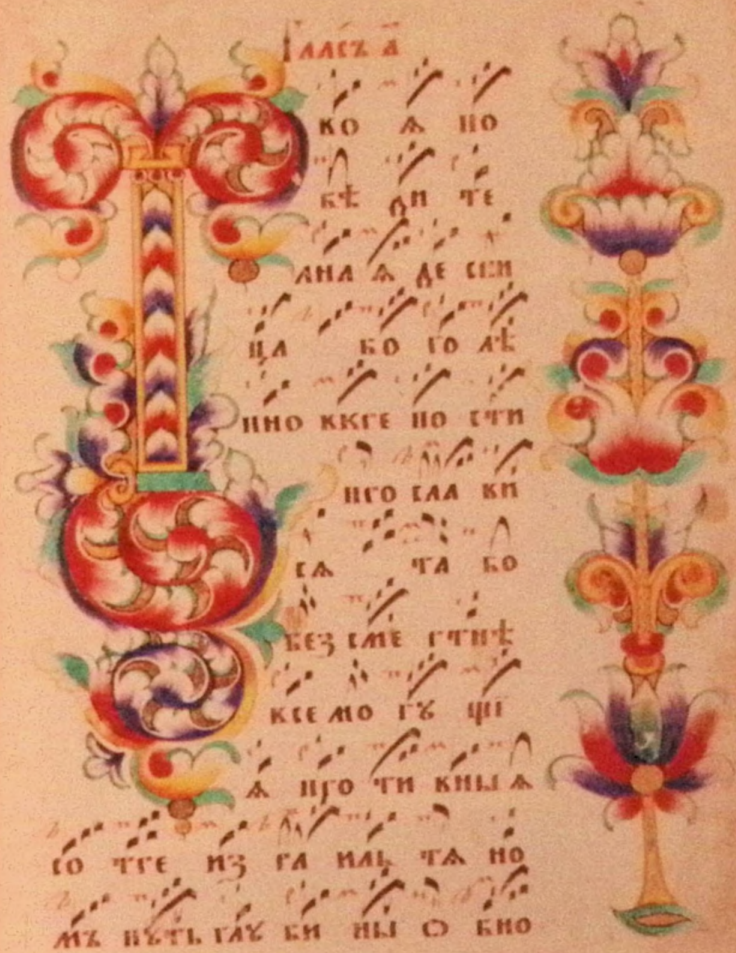 Гласъ а҃
Т во ѧ по
бѣ ди те
лна ѧ де сни
ца бо го лѣ
пно вкре по сти
про сла ви
сѧ та бо
без сме ртнѣ
все мо гꙋ щі
ѧ про ти вны ѧ
со тре из ра иль тѧ но
мъ путь глꙋ би ны ѡ бно